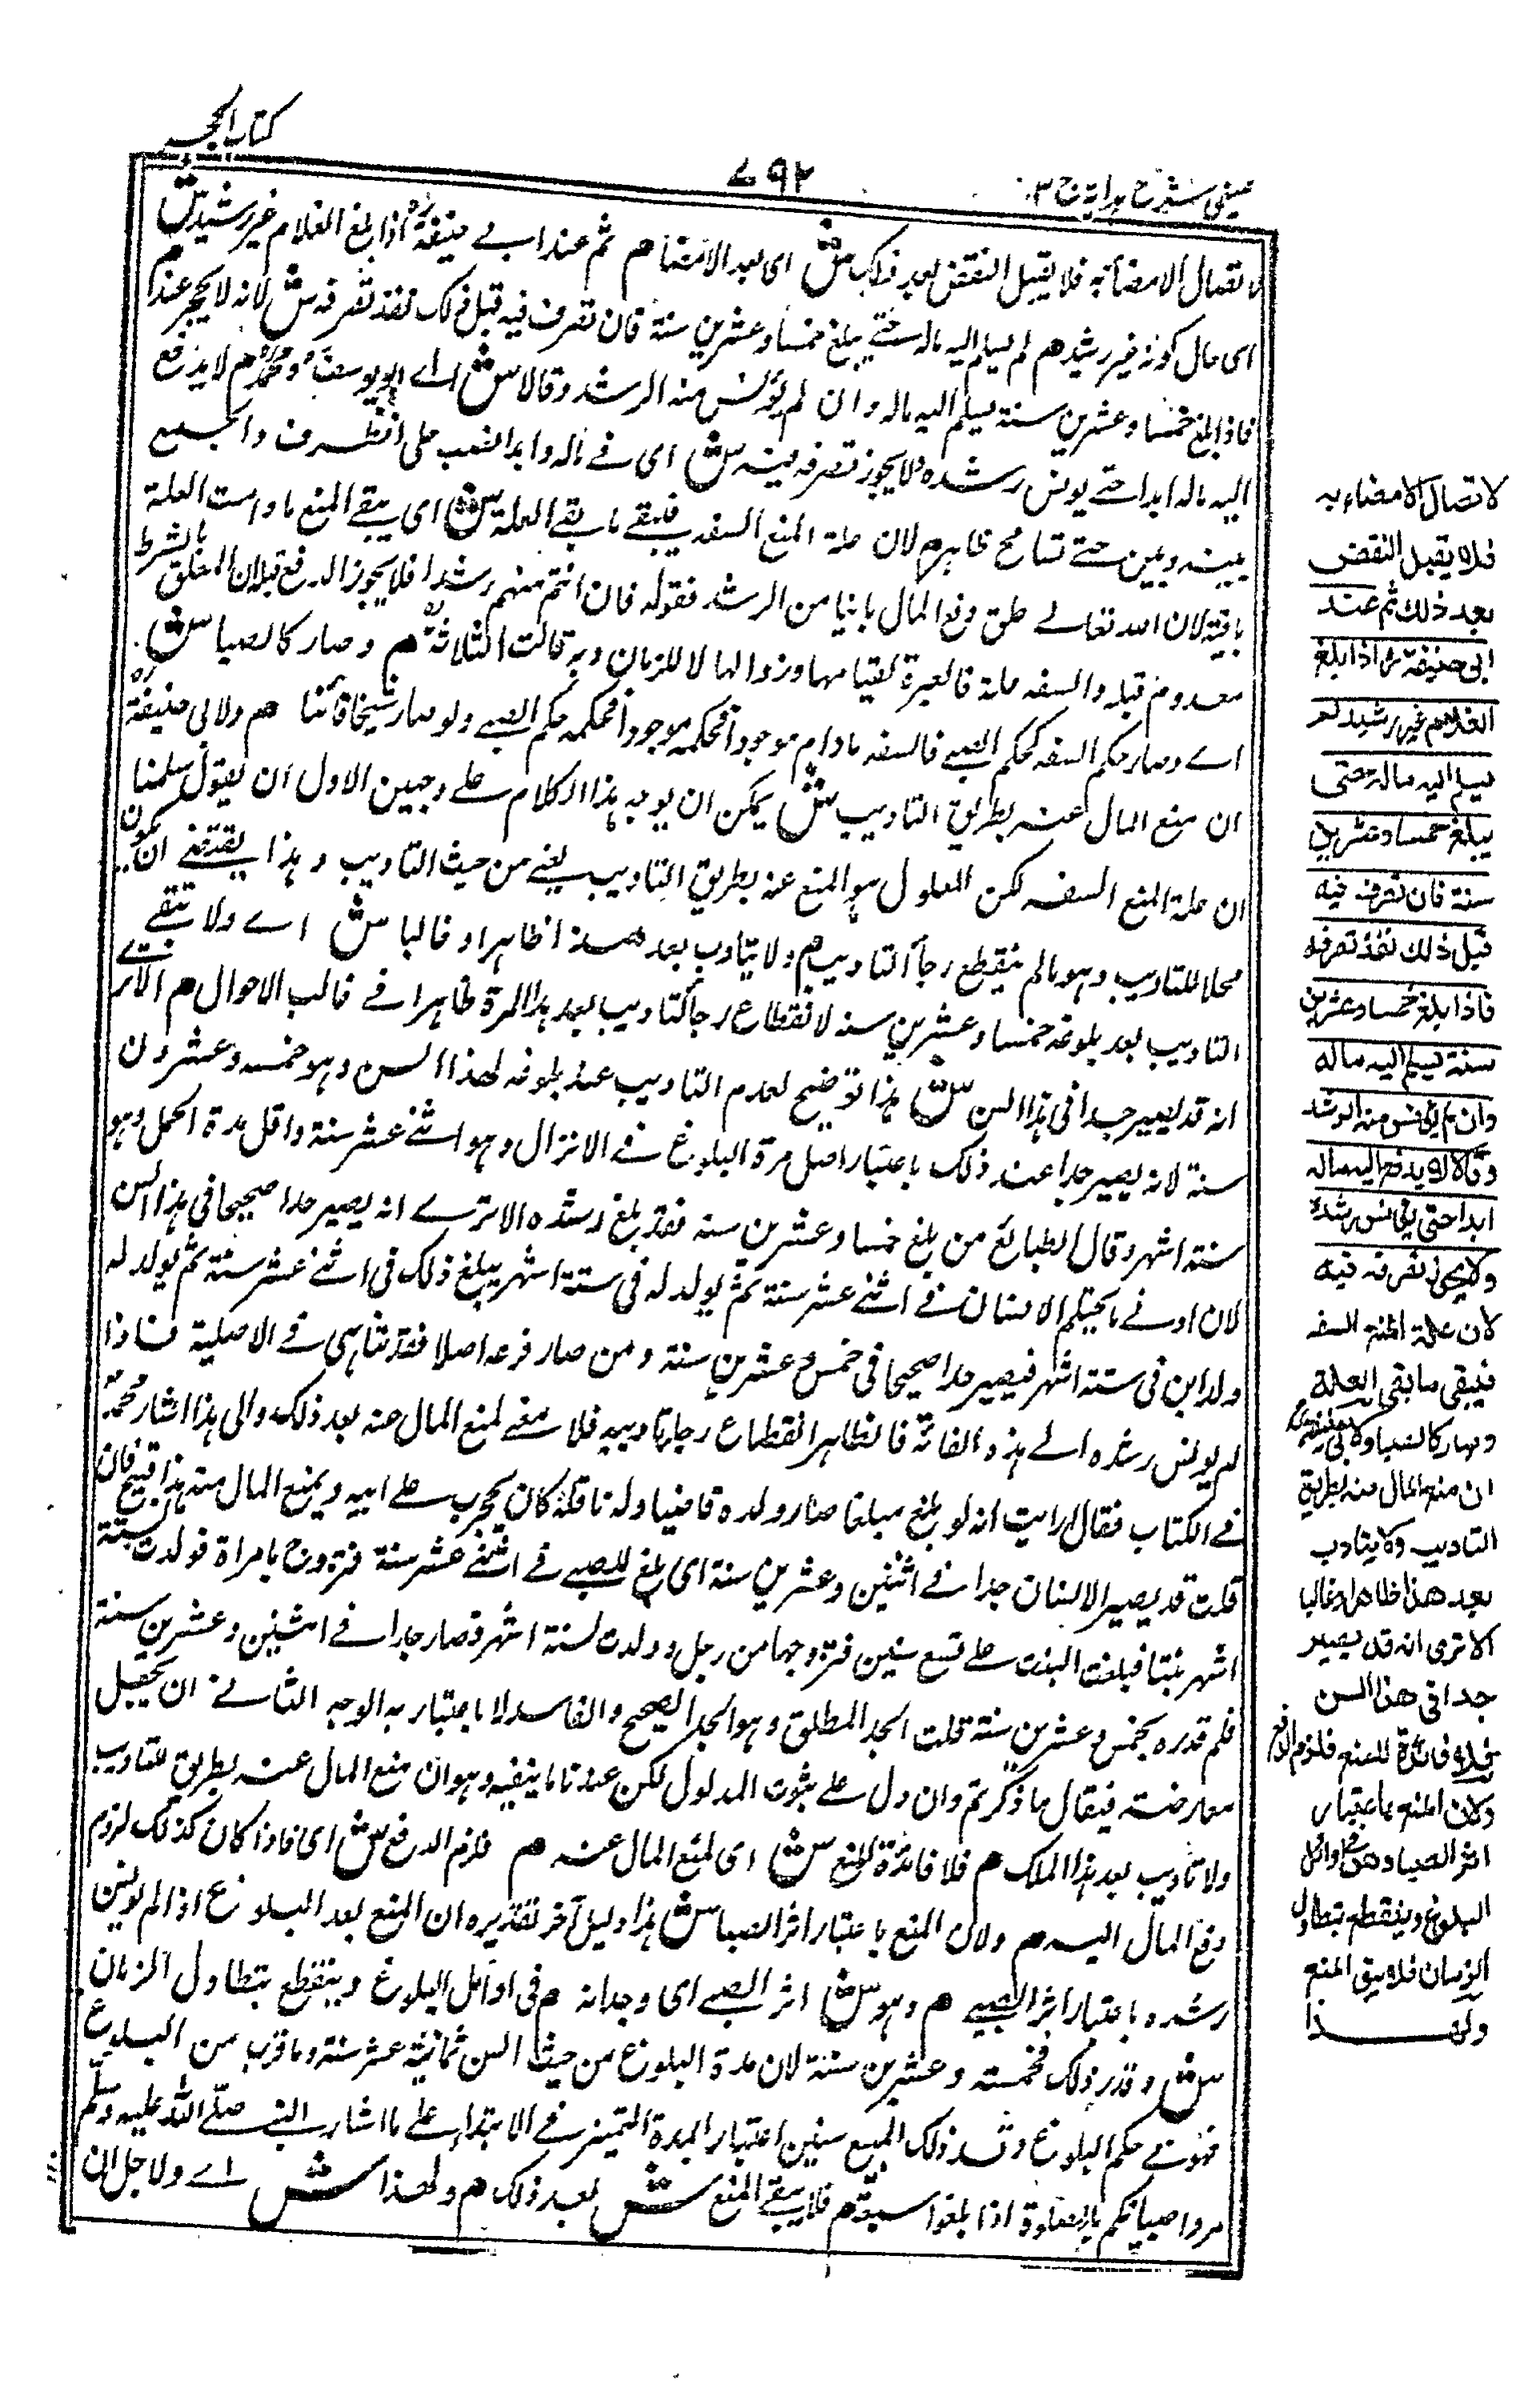 كتاب الحجر
٧٩٢
عينی شرح ہدایۃ ج ٣
لاتصال الامضاء به فلا يقبل النقض بعد ذلك ش اى بعد الامضاء م ثم عند ابے حنيفة رہ اذا بلغ الغلام غير رشيد ش
اى حال كونه غير رشيد م لم يسلم اليه ماله حتے يبلغ خمسا وعشرين سنة فان تصرف فيه قبل ذلك نفذ تصرفه ش لانه لا يحجر عنده م
فاذا بلغ خمسا وعشرين سنة يسلم اليه ماله وان لم يؤنس منه الرشد وقالا ش اے ابو يوسف و محمد م لا يدفع
اليه ماله ابدا حتے يونس رشده ولا يجوز تصرفه فيه ش اى فے ماله وابدا النصب على الظرف والجمع
بينه وبين حتے تسامح ظاہر م لان علة المنع السفه فيبقے ما بقے العلة ش اى يبقے المنع ما دامت العلة
باقية لان الله تعالے علق دفع المال باينا من الرشد فقوله فان انتم منهم رشدا فلا يجوز الدفع قبلان المعلق بالشرط
معدوم قبله والسفه علة فالعبرة لقيامها وزوالها لا للزمان وبه قالت الثلاثة م وصار كالصبا ش
اے وصار حكم السفه كحكم الصبے فالسفه ما دام موجودا فحكمه موجودا فحكمه حكم الصبے ولو صار شيخا فانيا م ولابى حنيفة رہ
ان منع المال عنه بطريق التاديب ش يمكن ان يوجه ہذا الكلام علے وجہين الاول ان يقول سلمنا
ان علة المنع السفه لكن المعلول ہو المنع عنه بطريق التاديب يعنے من حيث التاديب وہذا يقتضے ان يكون
محلا للتاديب وہو ما لم ينقطع رجاء التاديب م ولا يتادب بعد ہذا ظاہرا وغالبا ش اے ولا يبقے
التاديب بعد بلوغه خمسا وعشرين سنه لانقطاع رجاء التاديب بعد ہذا المرة ظاہرا فے غالب الاحوال م الا ترے
انه قد يصير جدا فى ہذا السن ش ہذا توضيح لعدم التاديب عند بلوغه لهذا السن وہو خمسه وعشرون
سنة لانه يصير جدا عند ذلك باعتبار اصل مدة البلوغ فے الانزال وہو اثنے عشر سنة واقل مدة الحمل وہو
ستة اشهر وقال الطبائع من بلغ خمسا وعشرين سنه فقد بلغ رشده الا ترے انه يصير جدا صحيحا فى ہذا السن
لان ادنے ما يحتلم الانسان فے اثنے عشر سنة ثم يولد له فى ستة اشهر يبلغ ذلك فى اثنے عشر سنة ثم يولد له
ولد ابن فى ستة اشهر فيصير جدا صحيحا فى خمس وعشرين سنة ومن صار فرعه اصلا فقد تناہى فے الاصلية فاذا
لم يونس رشده الے ہذه الغاية فالظاہر انقطاع رجاء تاديبه فلا معنے لمنع المال عنه بعد ذلك والى ہذا اشار محمد
فے الكتاب فقال ارايت انه لو بلغ مبلغا صار ولده قاضيا وله نافلة كان يحجر علے ابيه ويمنع المال منه ہذا قبيح فان
قلت قد يصير الانسان جدا فے اثنين وعشرين سنة اى بلغ الصبے فے اثنے عشر سنة فتزوج بامراة فولدت لستة
اشهر بنتا فبلغت البنت علے تسع سنين فتزوجها من رجل وولدت لستة اشهر فصار جدا فے اثنين وعشرين سنة
فلم قدره بخمس وعشرين سنة قلت الجد المطلق وہو الجد الصحيح والفاسد لا باعتبار به الوجه الثانے ان يحصل
معارضة فيقال ما ذكرتم وان دل علے ثبوت المدلول لكن عندنا ما ينفيه وہو ان منع المال عنه بطريق التاديب
ولا تاديب بعد ہذا الملك م فلا فائدة للمنع ش اى لمنع المال عنه م فلزم الدفع ش اى فاذا كان كذلك لزوم
دفع المال اليه م ولان المنع باعتبار اثر الصبا ش ہذا دليل آخر تقديره ان المنع بعد البلوغ اذا لم يونس
رشده باعتبار اثر الصبے م وہو ش اثر الصبے اى وجدانه م فى اوائل البلوغ وينقطع بتطاول الزمان
ش وقدر ذلك فخمسته وعشرين سنة لان مدة البلوغ من حيث السن ثمانية عشر سنة وما قرب من البلوغ
فهو فے حكم البلوغ وقد ذلك السبع سنين اعتبار المدة التميز فے الابتداء علے ما اشار النبے صلے الله عليه وسلم
مروا صبيانكم بالصلوة اذا بلغوا سبعا م فلا يبقے المنع ش بعد ذلك م ولهذا ش اے ولاجل ان
لاتصال الامضاء به
فلا يقبل النقض
بعد ذلك ثم عند
ابى حنيفة رہ اذا بلغ
الغلام غير رشيد لم
يسلم اليه ماله حتى
يبلغ خمسا وعشرين
سنة فان تصرف فيه
قبل ذلك نفذ تصرفه
فاذا بلغ خمسا وعشرين
سنة يسلم اليه ماله
وان لم يونس منه الرشد
وقالا لا يدفع اليه ماله
ابدا حتى يونس رشده
ولا يجوز تصرفه فيه
لان علة المنع السفه
فيبقى ما بقى العلة
وصار كالصبا ولابى حنيفة رہ
ان منع المال منه بطريق
التاديب ولا يتادب
بعد هذا ظاهرا وغالبا
الا ترى انه قد يصير
جدا فى هذا السن
فلا فائدة للمنع فلزم الدفع
ولان المنع باعتبار
اثر الصبا وهو فى اوائل
البلوغ وينقطع بتطاول
الزمان فلا يبقى المنع
ولهذا